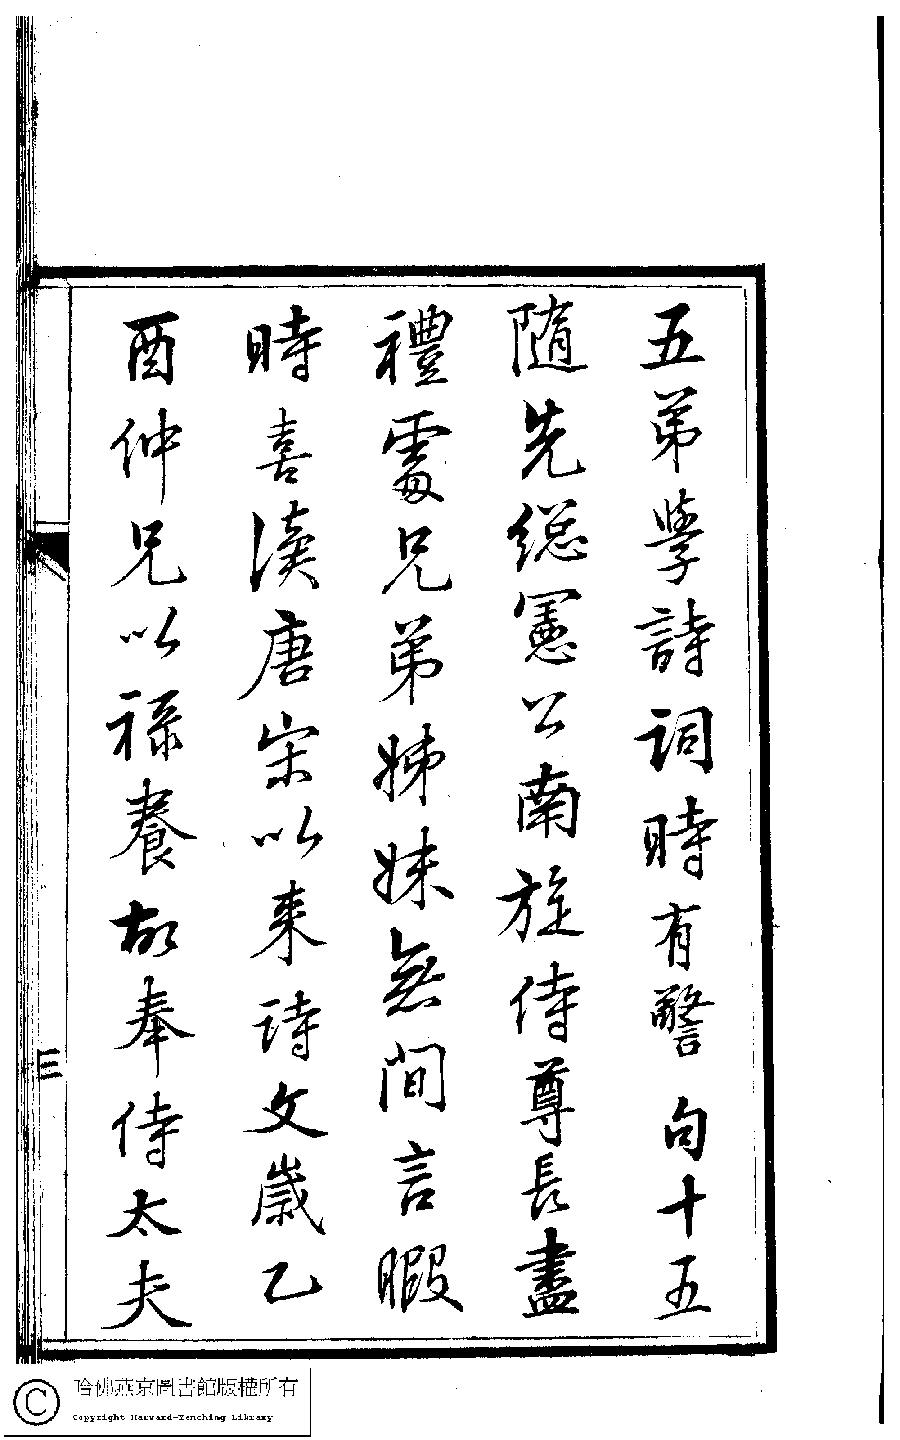 五弟學詩詞時有警句十五
隨先總憲公南旋侍尊長盡
禮處兄弟姊妹無間言暇
時喜漢唐宋以來詩文歲乙
酉仲兄以祿養故奉侍太夫
三
哈佛燕京圖書館版權所有
Copyright Harvard-Yenching Library